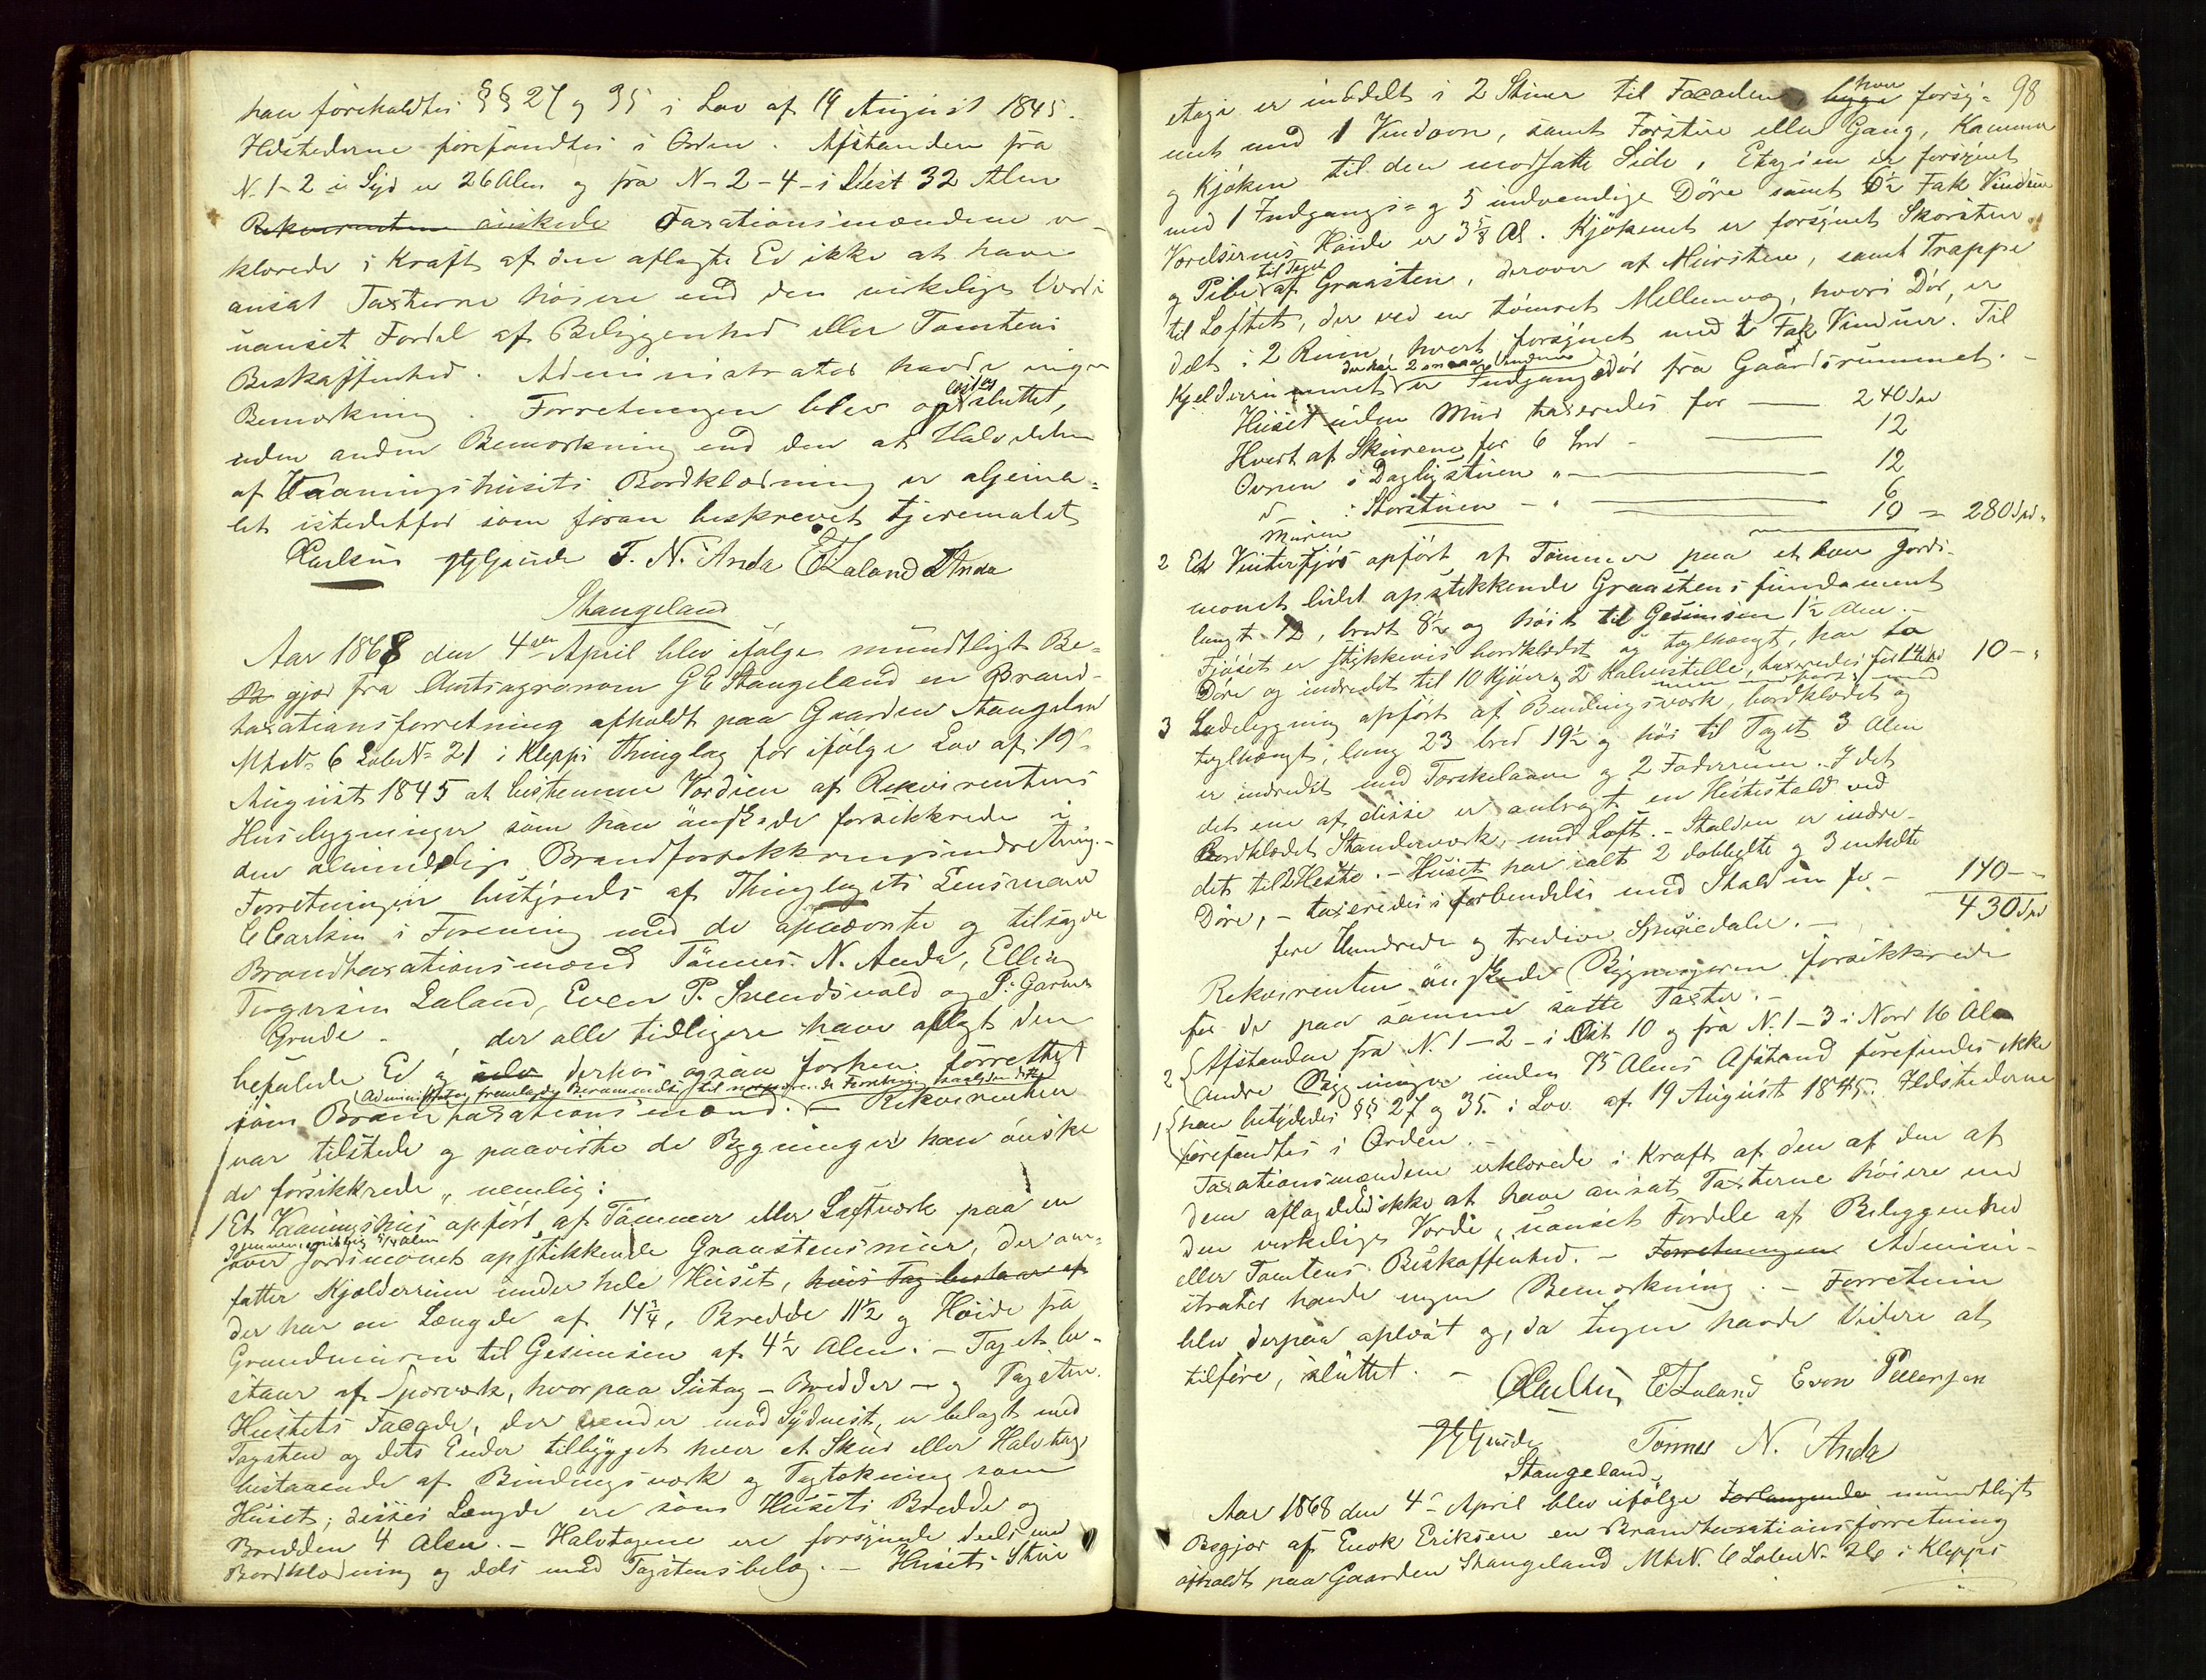 han foreholdtes §§ 27 og 35 i Lov af 19 August 1845.
Ildstederne forefandtes i Orden. Afstanden fra
N. 1-2 i Syd er 26 Alen og fra N- 2-4- i Vest 32 Alen
Rekvirenten ønskede Taxationsmændene er-
klærede i Kraft af den aflagte Ed ikke at have
ansat Taxterne høiere end den virkelige Værdi
uanset Fordel af Beliggenhed eller Tomtens
Beskaffenhed. Administrator havde ingen
Bemærkning. Forretningen blev oplæst og sluttet,
uden anden Bemærkning end den at Halvdelen
af Vaaningshusets Bordklædning er oljema-
let istedetfor som foran beskrevet tjæremalet
CCarlsen T. N. Anda E.T. Laland
Stangeland
Aar 1868 den 4de April blev ifølge mundtligt Be-
gjær fra Amtsagronom G E Stangeland en Brand-
taxationsforretning afholdt paa Gaarden Stangeland
Mt.N= 6 Løbe N= 21 i Klepps Thinglag for ifølge Lov af 19=
August 1845 at bestemme Værdien af Rekvirentens
Husebygninger som han ønskede forsikkrede i
den almindelige Brandforsikkringsindretning.-
Forretningen bestyredes af Thinglagets Lensmand
C Carlsen i Forening med de opnævnte og tilsagte
Brandtaxationsmænd Tönnes N. Anda, Elling
Torgersen Laland, Even P. Svendsvold og P. Garmes
Grude - , der alle tidligere have aflagt den
befalede Ed og derhos ogsaa forhen forrettet
som Brandtaxationsmænd. - Rekvirenten
var tilstede og paaviste de Bygninger han ønske-
de forsikkrede, nemlig:
1 Et Vaaningshus opført af Tømmer eller Laftværk paa en
gjennemsnitlig 5/4 Alen
over Jordsmonet opstikkende Graastensmur, der om-
fatter Kjælderrum under hele Huset, hvis Tag bestaar af
der har en Længde af 14 3/4, Bredde 11 1/2 og Høide fra
Grundmuren til Gesimsen af 4 1/2 Alen. - Taget be-
staar af Sperværk, hvorpaa Sutag - Bredder - og Tagsten.
Husets Facade, der vender mod Sydvest, er belagt med
Tagsten og dets Ender tilbygget hver et Skur eller Halvtag
bestaaende af Bindingsværk og Tagtækning som
Huset; disses Længde ere som Husets Bredde og
Bredden 4 Alen. - Halvtagene ere forsynede deels med
Bordklædning og dels med Tagstensbelæg. - Husets Stue
98
etage er inddelt i 2 Stuer til Facaden, begge hver forsy-
net med 1 Vindovn, samt Forstue eller Gang, Kammer
og Kjøken til den modsatte Side, Etagien er forsynet
med 1 Indgangs= og 5 indvendige Døre samt 6 1/2 Fak Vinduer
Værelsernes Høide er 3 5/8 Al. Kjøkenet er forsynet Skorsten
og Pibe til Taget af Graasten, derover af Mursten, samt Trappe
til Loftet, der ved en tømret Mellemvæg, hvori Dør, er
delt i 2 Rum, hvert forsynet med 1 Fak Vinduer. Til
Kjelderrummet der har 2 smaa Vinduer er Indgangsdør fra Gaardsrummet.-
Huset uden Mur taxeredes for — 240 Spd
Hvert af Skurene for 6 Spd - — 12
Ovnen i Dagligstuen " — 12
d - i Storstuen - " — 6
Muren — 10 = 280 Spd.
2 Et Vinterfjøs opført af Tømmer paa et over Jords-
monet lidet opstikkende Graastensfundament
langt 12, bredt 8 1/2 og høit til Gesimsen 1 1/2 Alen.-
Fjøset er stykkevis bordklædet og taghængt, har to
Døre og indredet til 10 Kjør og 2 Kalvestelle, taxeredes for 10-"
3 Ladebygning opført af Bindingsværk, bordklædet og
taglhængt; lang 23 bred 19 1/2 og høi til Taget 3 Alen
er indredet med Tærskelaave og 2 Foderrum. I det
det ene af disse er anbragt en Hestestald ved
Bordklædet Standerværk, med Loft. - Stalden er indre-
det til 2 Heste. - Huset har ialt 2 dobbelte og 3 enkelte
Døre, - taxeredes i forbindelse med Stalden for - 140-"
430 Spd
fire Hundrede og tredive Speciedaler.-
Rekvirenten ønskede Bygningerne forsikkrede
for de paa samme satte Taxter.-
2 Afstanden fra N. 1-2- i Øst 10 og fra N. 1-3 i Nord 16 Alen
Andre Bygninger inden 75 Alens Afstand forefindes ikke
1 han betydedes §§ 27 og 35 i Lov af 19 August 1845. Ildstederne
forefandtes i Orden.-
Taxationsmændene erklærede i Kraft af den af den af
dem aflagde Ed ikke at have ansat Taxterne høiere end
den virkelige Værdi, uanset Fordele af Beliggenhed
eller Tomtens Beskaffenhed. - Forretningen Admini-
strator havde ingen Bemærkning. - Forretnin
blev derpaa oplæst og, da Ingen havde Videre at
tilføre, sluttet. -
CCarlsen E.T. Laland Even Pedersen
Tonnes N. Anda
Stangeland
Aar 1868 den 4de April blev ifølge Forlangende mundtligt
Begjær af Enok Eriksen en Brandtaxationsforretning
afholdt paa Gaarden Stangeland Mt.N. 6 Løbe N. i Klepps